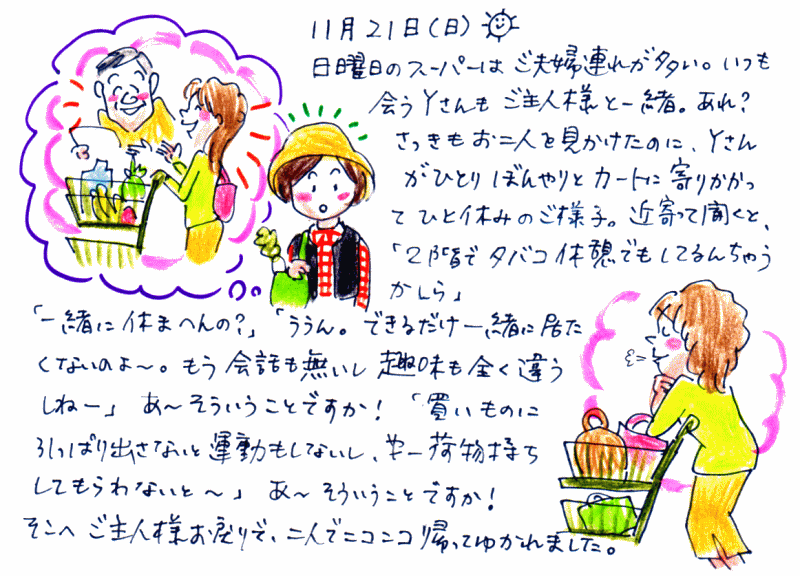 11月21日(日)
日曜日のスーパーは ご夫婦連れが多い。いつも
会うYさんも ご主人様と一緒。あれ?
さっきもお二人を見かけたのに、Yさん
がひとり ぼんやりと カートに 寄りかかっ
て ひと休みのご様子。近寄って聞くと、
「2階で タバコ休憩でもしてるんちゃう
かしら」
「一緒に休まへんの?」「ううん。できるだけ一緒に居た
くないのよ〜。もう 会話も無いし 趣味も全く違う
しねー」 あ〜そういうことですか! 「買いものに
引っぱり出さないと運動もしないし、 荷物持ち
してもらわないと〜」 あ〜そういうことですか!
そこへ ご主人様お戻りで、二人でニコニコ 帰ってゆかれました。